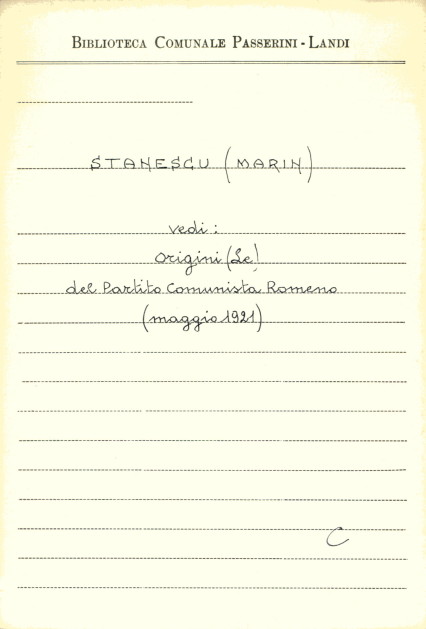 BIBLIOTECA COMUNALE PASSERINI - LANDI
STANESCU (MARIN)
vedi :
Origini (Le)
del Partito Comunista Romeno
(maggio 1921)
C